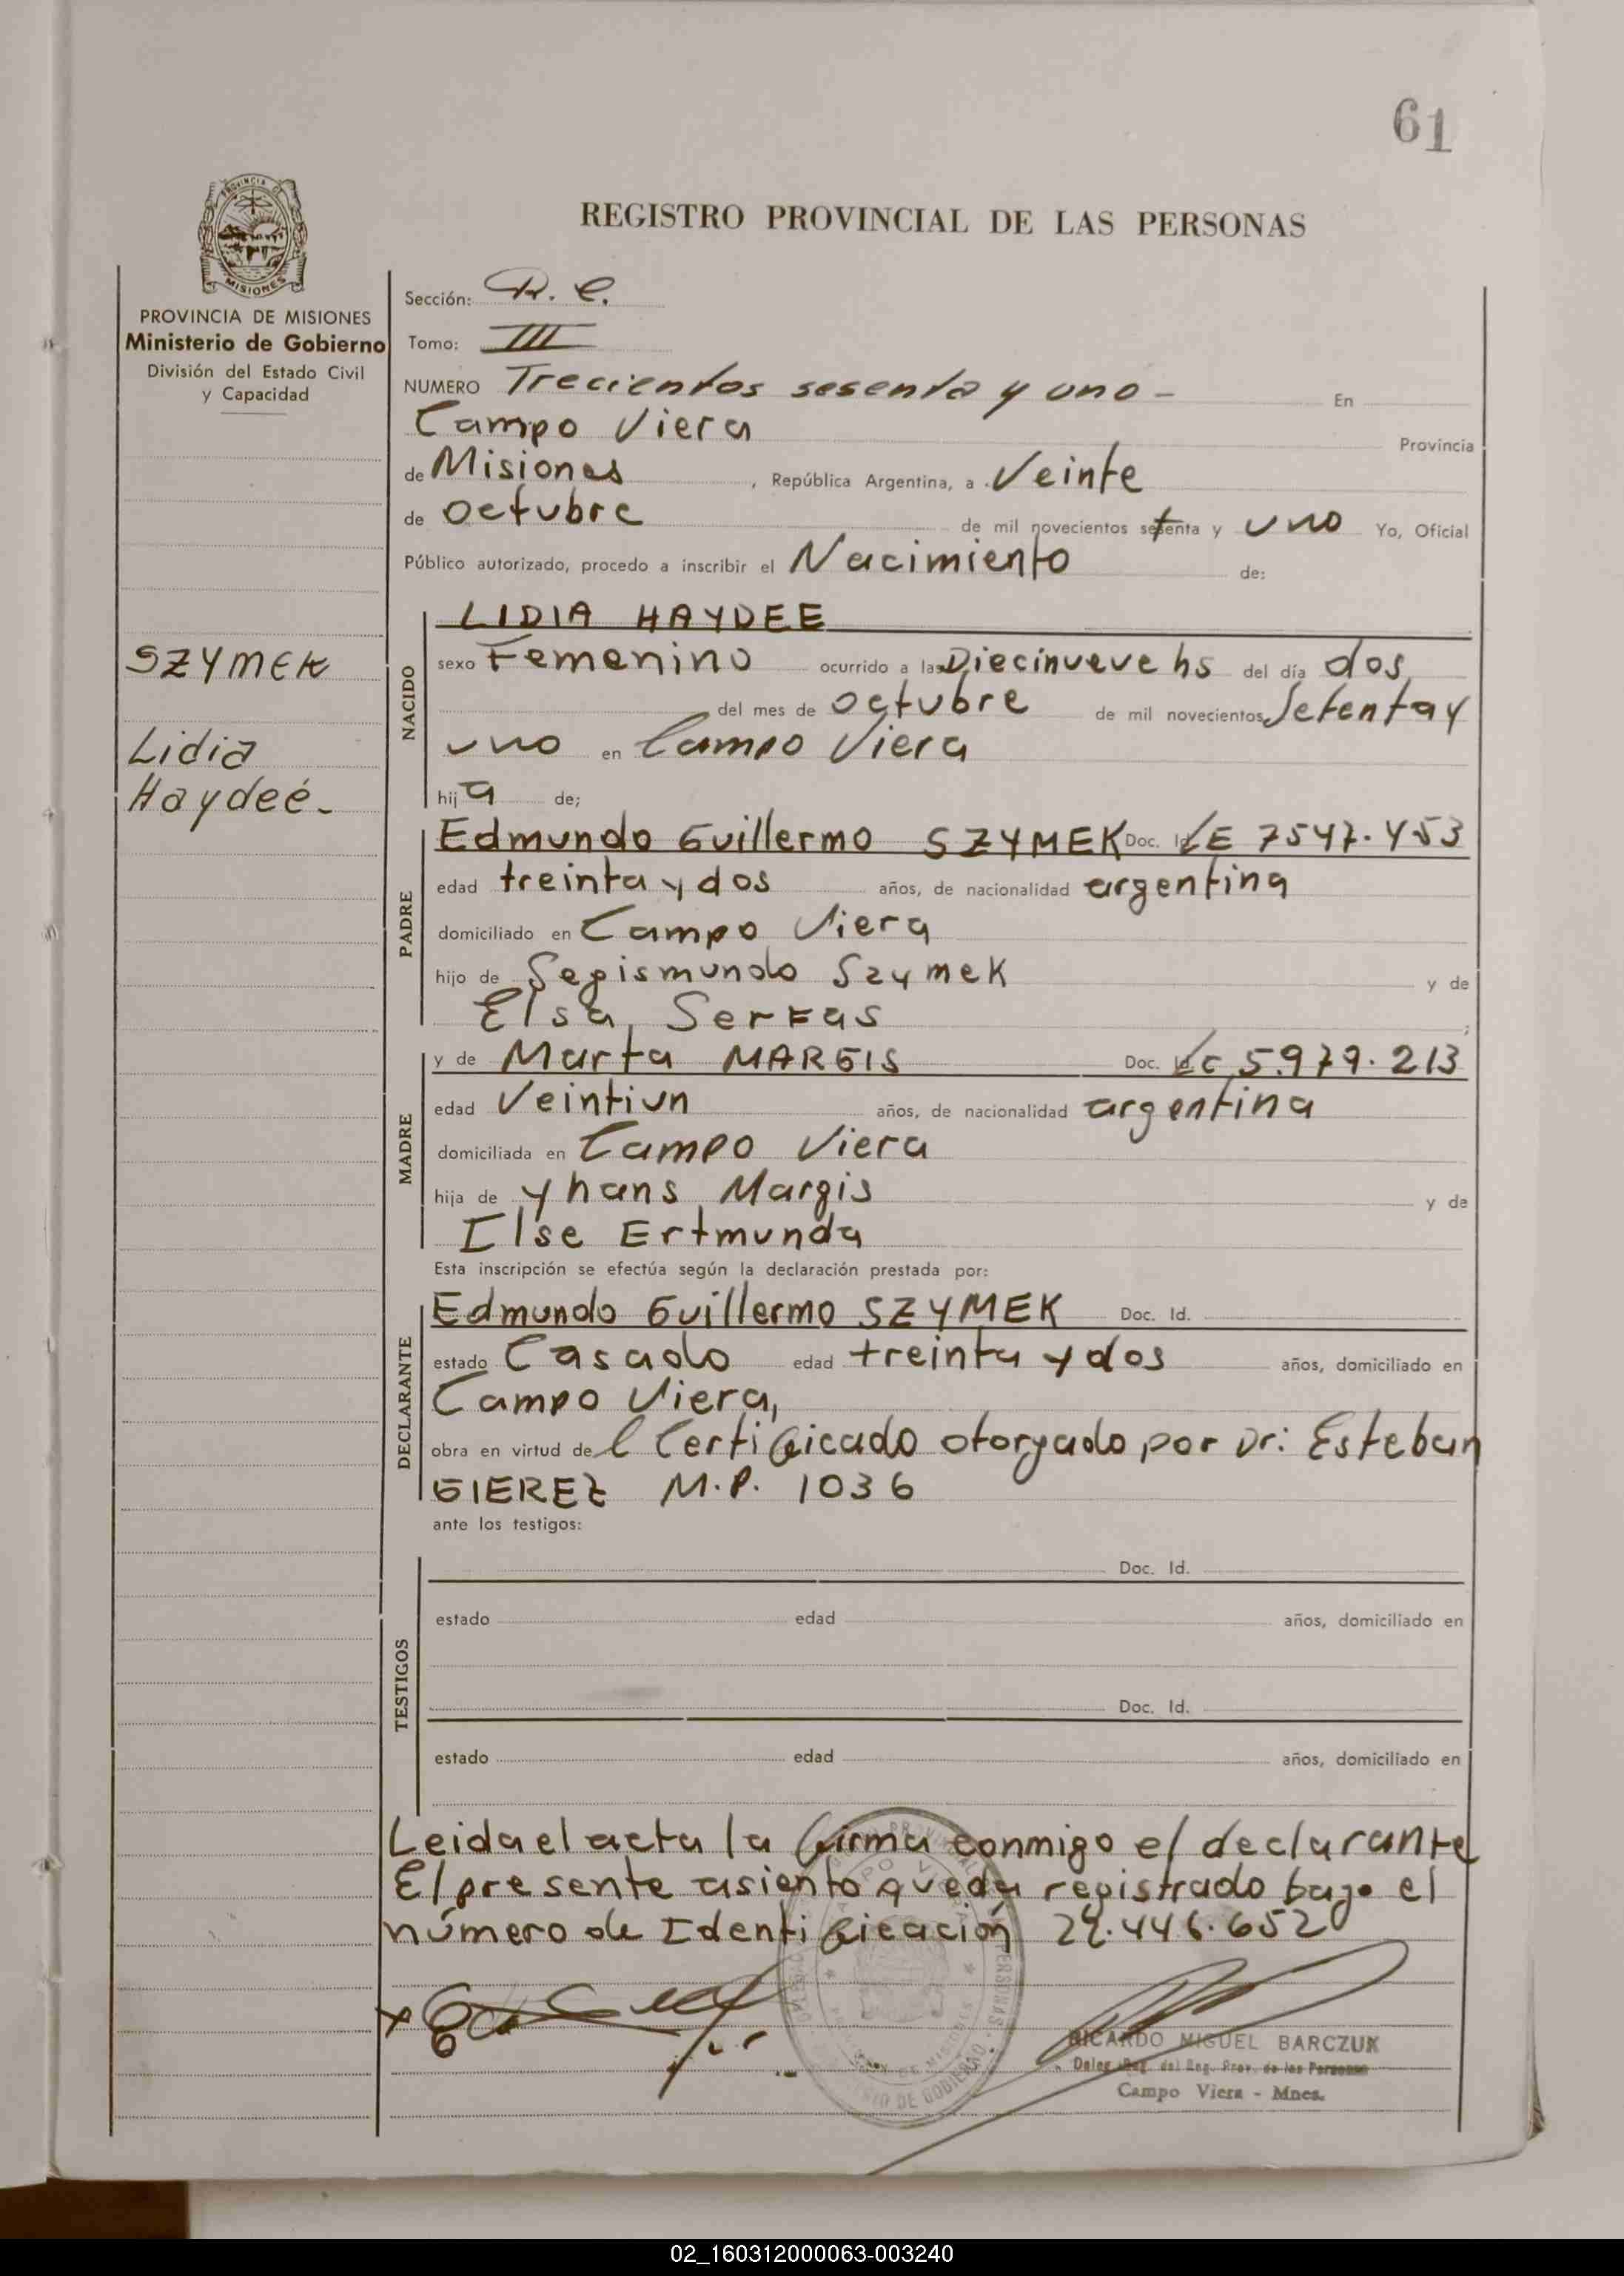 61
REGISTRO PROVINCIAL DE LAS PERSONAS
PROVINCIA DE MISIONES
Ministerio de Gobierno
División del Estado Civil
y Capacidad
SZYMEK
Lidia
Haydeé.
Sección: R. C.
Tomo: III
NUMERO Trecientos sesenta y uno - En
Campo Viera Provincia
de Misiones, República Argentina, a Veinte
de octubre de mil novecientos setenta y uno Yo, Oficial
Público autorizado, procedo a inscribir el Nacimiento de:
NACIDO
LIDIA HAYDEE
sexo Femenino ocurrido a las Diecinueve hs del día dos
del mes de octubre de mil novecientos Setenta y
uno en Campo Viera
hija de;
PADRE
Edmundo Guillermo SZYMEK Doc. Id. LE 7547.453
edad treinta y dos años, de nacionalidad argentina
domiciliado en Campo Viera
hijo de Segismundo Szymek y de
Elsa Serfas;
MADRE
y de Marta MARGIS Doc. Id. LC 5.979.213
edad Veintiun años, de nacionalidad argentina
domiciliada en Campo Viera
hija de Yhans Margis y de
Ilse Ertmunda
Esta inscripción se efectúa según la declaración prestada por:
DECLARANTE
Edmundo Guillermo SZYMEK Doc. Id.
estado Casado edad treinta y dos años, domiciliado en
Campo Viera,
obra en virtud del Certificado otorgado por Dr: Esteban
GIEREZ M.P. 1036
ante los testigos:
TESTIGOS
Doc. Id.
estado edad años, domiciliado en
Doc. Id.
estado edad años, domiciliado en
Leida el acta la firma conmigo el declarante
El presente asiento queda registrado bajo el
número de Identificación 22.446.652
RICARDO MIGUEL BARCZUK
Deleg. Reg. del Reg. Prov. de las Personas
Campo Viera - Mnes.
02_160312000063-003240